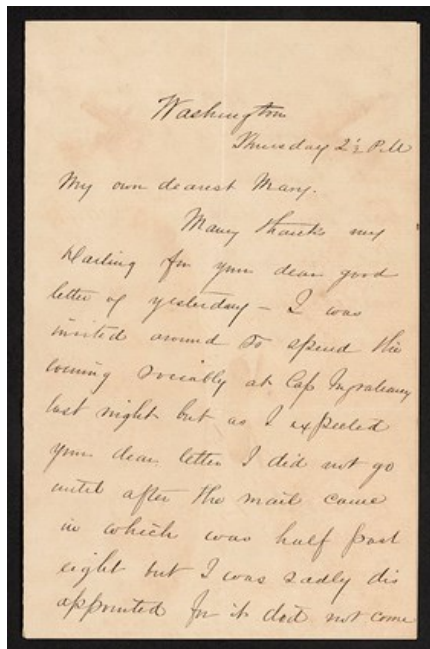 Washington
Thursday 2½ P.M
My own dearest Mary.
Many thanks my
darling for your dear good
letter of yesterday – I was
invited around to spend the
evening sociably at Cap
last night but as I expected
your dear letter I did not go
until after the mail came
in which was half past
eight but I was sadly dis
appointed for it did not come